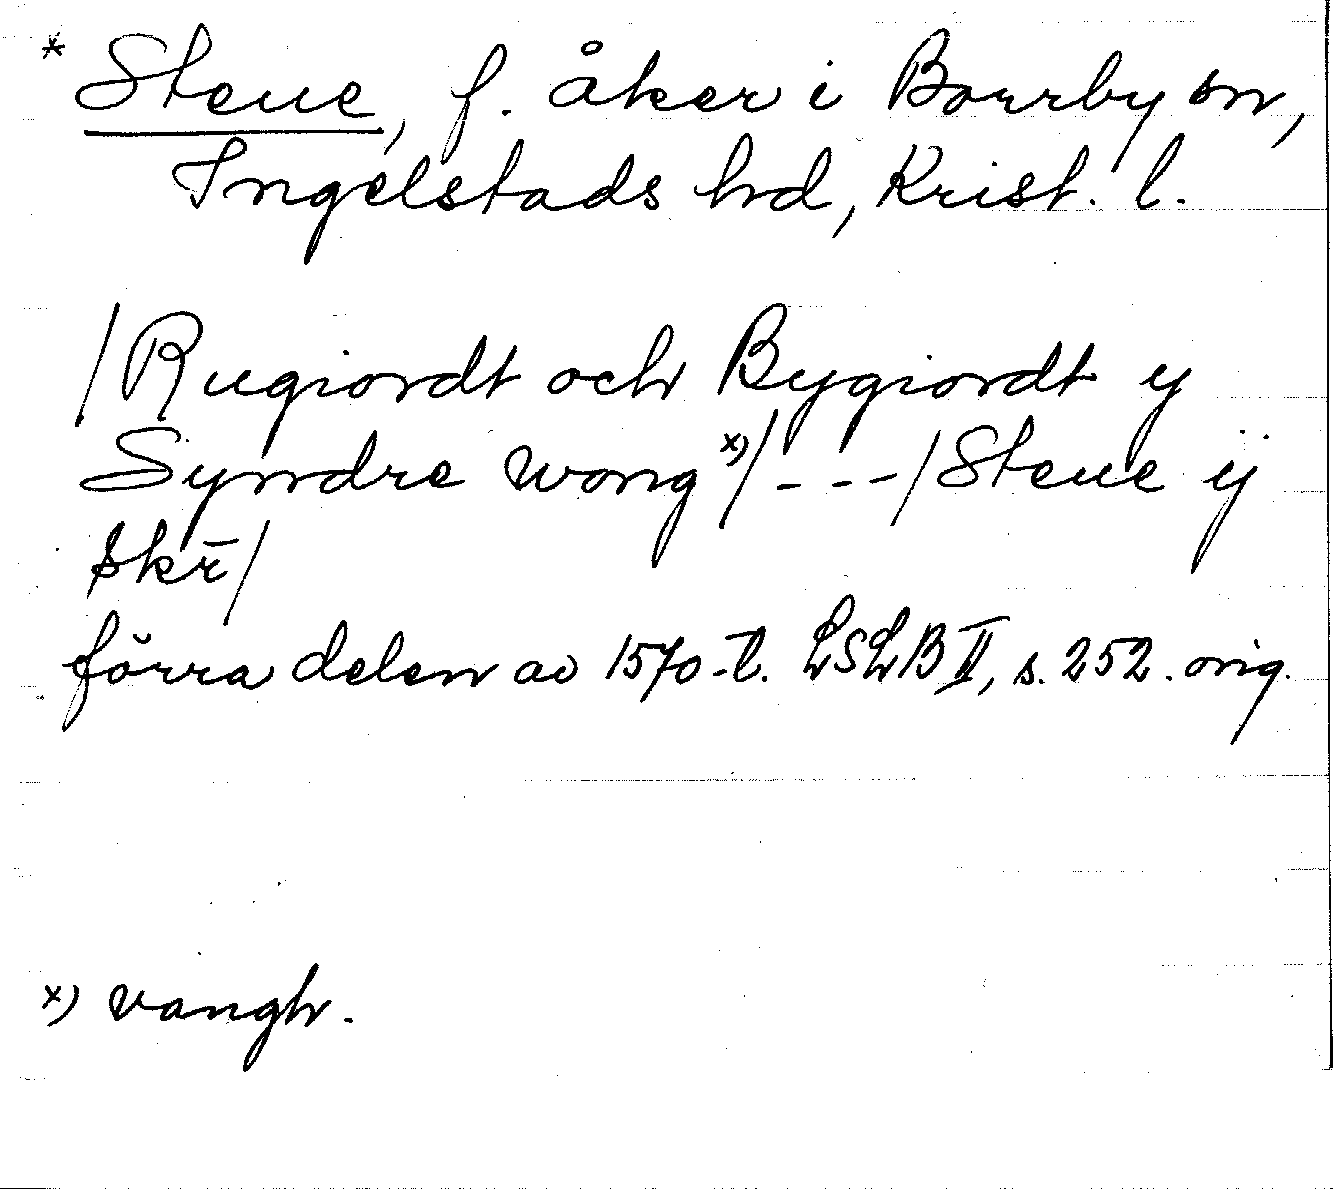 * Steue, f. åker i Borrby sn,
Ingelstads hd, Krist. l.
/Rugiordt och Bygiordt y
Syndre wong x)/---/Steue ÿ
skr̄/
förra delen av 1570-t. LSLB II, s. 252. orig.
x) vangh.